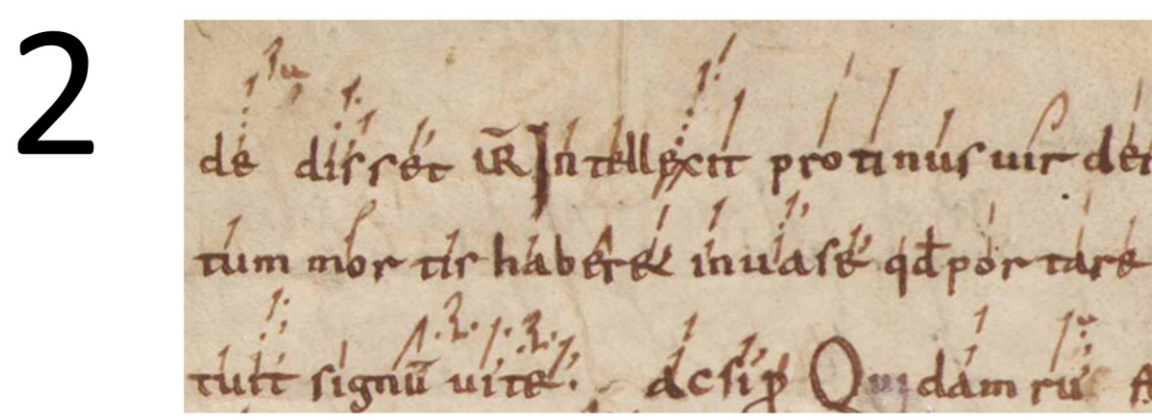 2
de disset iR̄ Intellexit protinus uir dei
tum mortis haberet in uase qđ portare
tulit signū uite. acsiꝑ Quidam rū